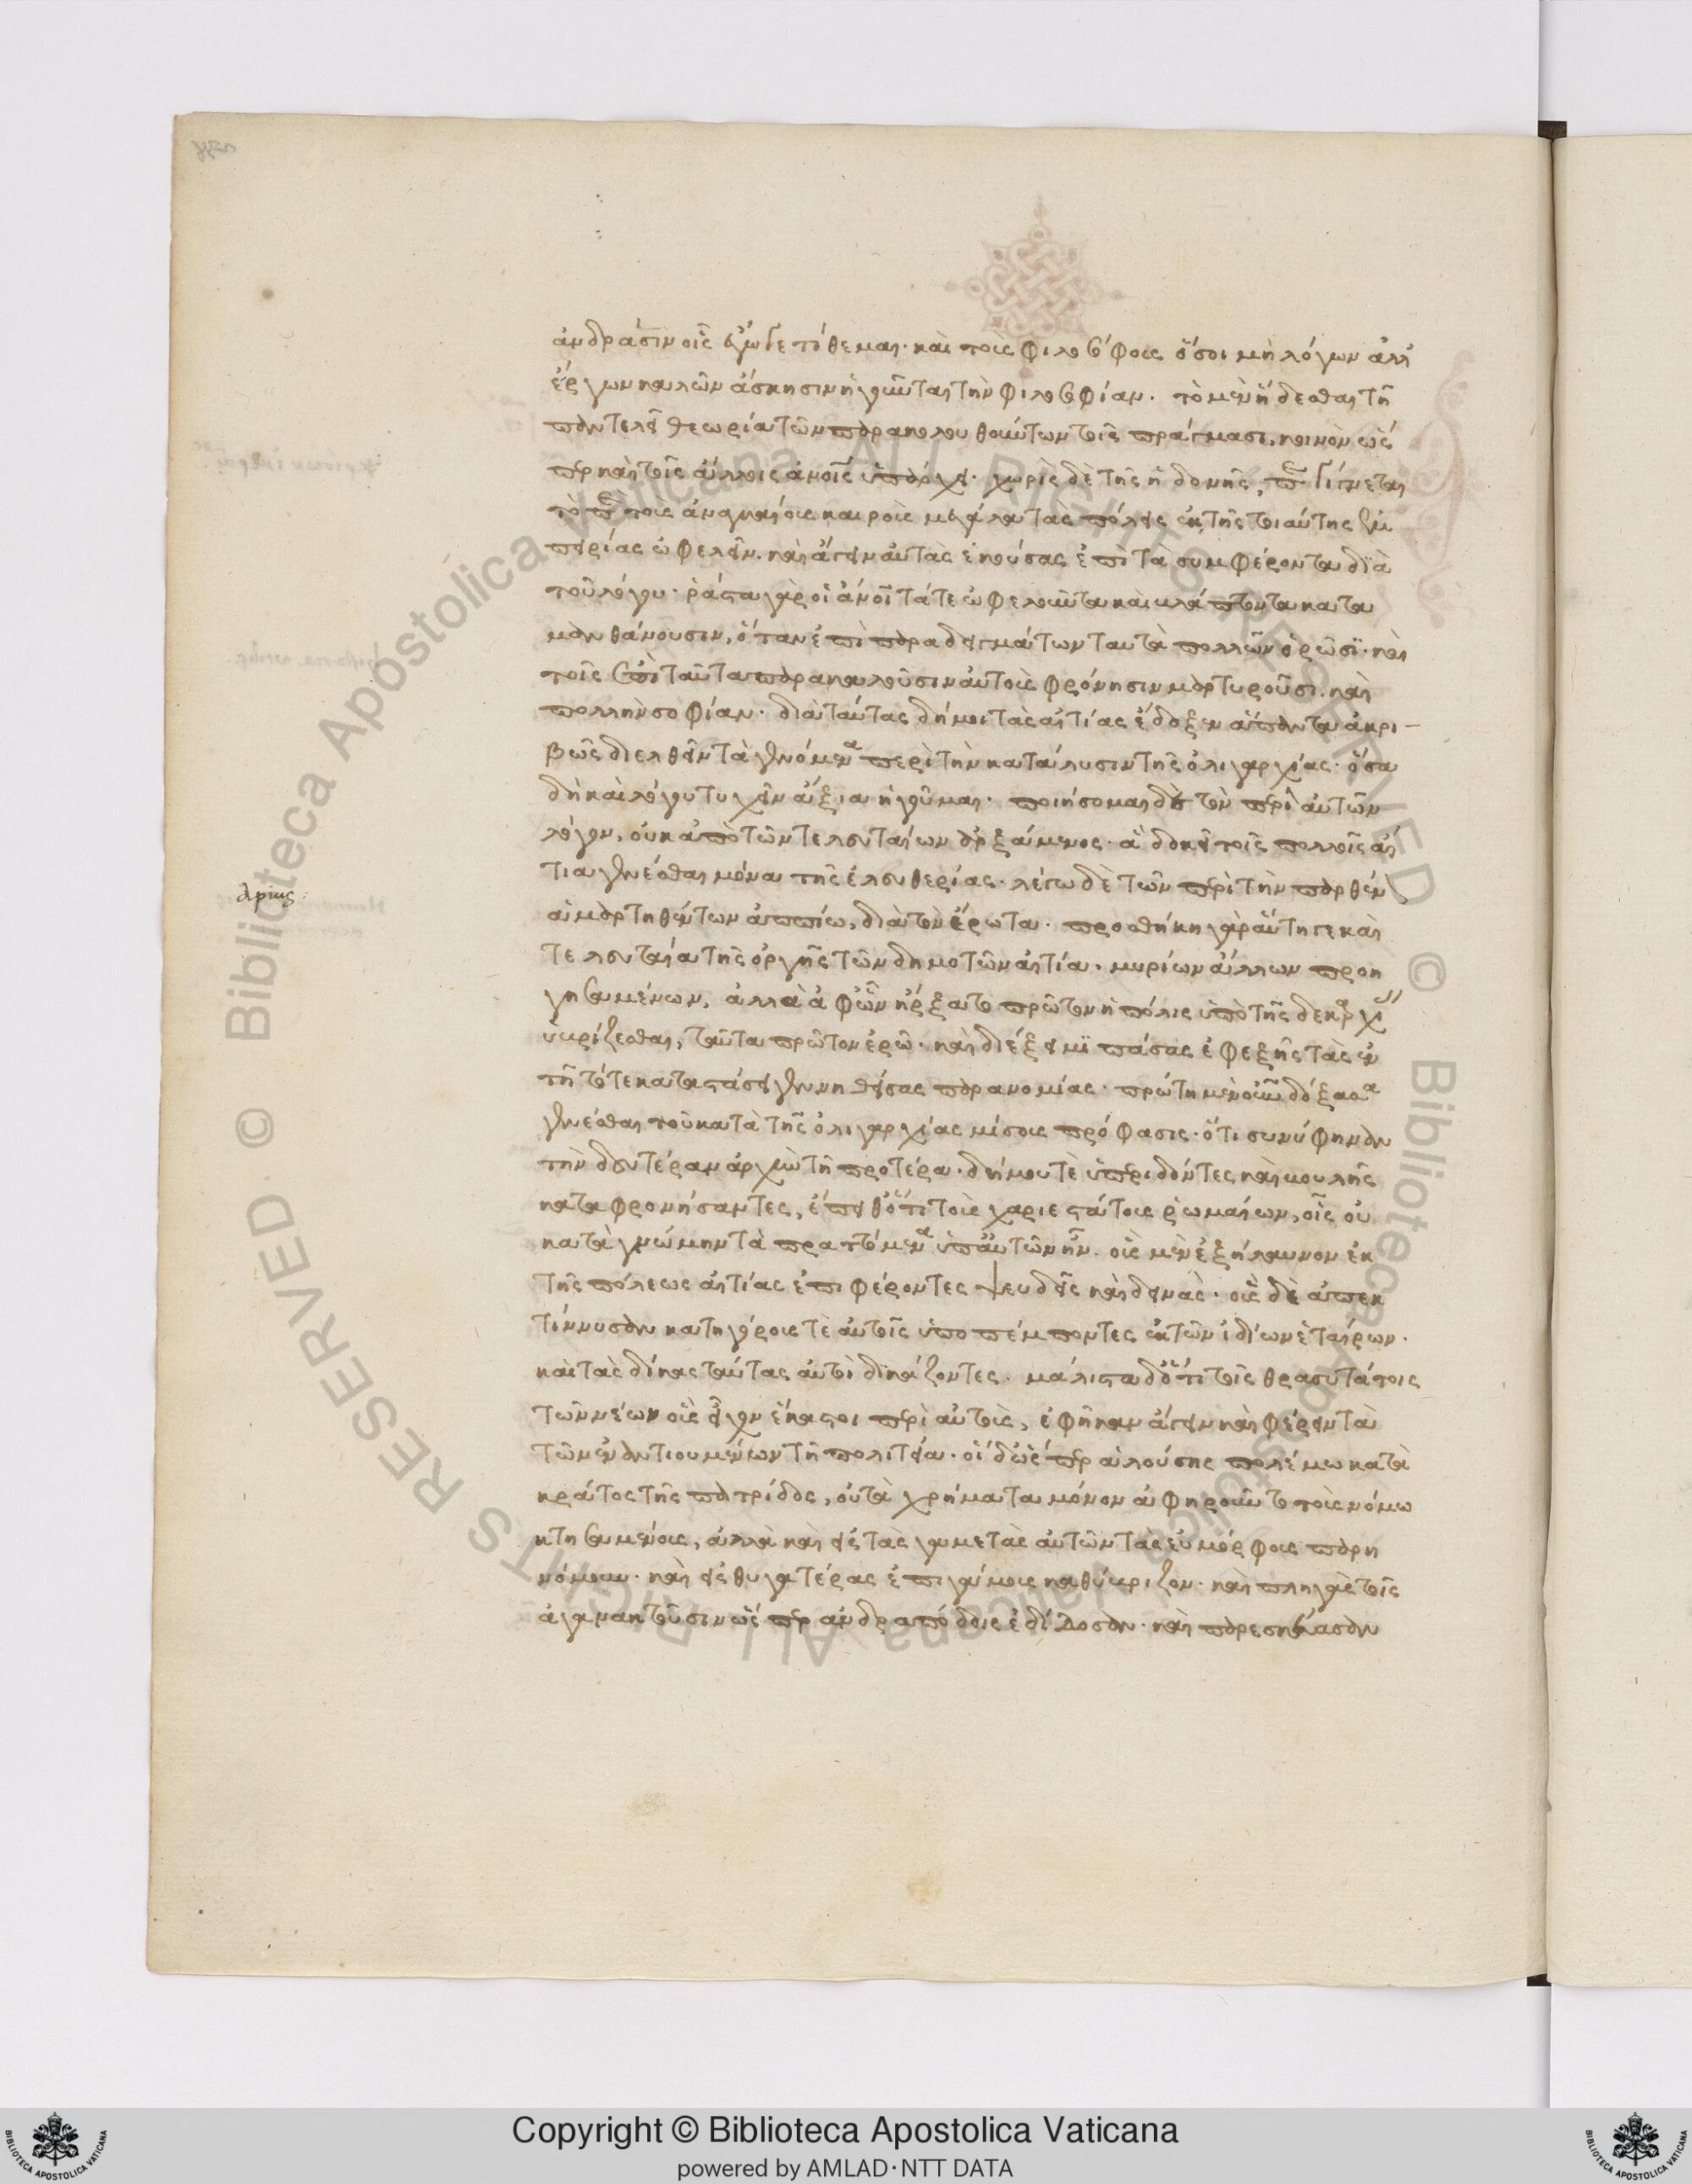 ἀνδράσιν οἷς ἔγωγε τίθεμαι· καὶ τοὺς φιλοσόφους ὅσοι μὴ λόγων ἀλλ'
ἔργων καλῶν ἄσκησιν ἡγοῦνται τὴν φιλοσοφίαν. τὸ μὲν ἥδεσθαι τῇ
παντελεῖ θεωρία τῶν παρακολουθούντων τοῖς πράγμασι, κοινὸν ὥσ
περ καὶ τοῖς ἄλλοις ἀνοῖς ὑπάρχει· χωρὶς δὲ τῆς ἡδονῆς, περιγίνεται
τὸ περὶ τοὺς ἀναγκαίους καιροὺς μεγάλα τὰς πόλεις ἐκ τῆς τοιαύτης ἐμ
πειρίας ὠφελεῖν. καὶ ἄγειν αὐτὰς ἑκούσας ἐπὶ τὰ συμφέροντα διὰ
τοῦ λόγου· ῥάστα γὰρ οἱ ἄνοι τά τε ὠφελοῦντα καὶ βλάπτοντα κατα
μανθάνουσιν, ὅταν ἐπὶ παραδειγμάτων ταῦτα πολλῶν ὁρῶσι· καὶ
τοῖς ἐπὶ ταῦτα παρακαλοῦσιν αὐτοὺς φρόνησιν μαρτυροῦσι. καὶ
πολλὴν σοφίαν. διὰ ταύτας δή μοι τὰς αἰτίας ἔδοξεν ἅπαντα ἀκρι-
βῶς διελθεῖν τὰ γενόμενα περὶ τὴν κατάλυσιν τῆς ὀλιγαρχίας· ὅσα
δὴ καὶ λόγου τυχεῖν ἄξια ἡγοῦμαι. ποιήσομαι δὲ τὸν περὶ αὐτῶν
λόγον, οὐκ ἀπὸ τῶν τελευταίων ἀρξάμενος· ἃ δοκεῖ τοῖς πολλοῖς αἴ
τια γενέσθαι μόνα τῆς ἐλευθερίας. λέγω δὲ τῶν περὶ τὴν παρθέν
Apius:
ἁμαρτηθέντων ἀππίω, διὰ τὸν ἔρωτα. προσθήκη γὰρ αὕτη γε καὶ
τελευταία τῆς ὀργῆς τῶν δημοτῶν αἰτία. μυρίων ἄλλων προη
γησαμένων, ἀλλὰ ἀφ' ὧν ἤρξατο πρῶτον ἡ πόλις ὑπὸ τῆς δεκαρχί
ὑβρίζεσθαι, ταῦτα πρῶτον ἐρῶ. καὶ διέξειμι πάσας ἐφεξῆς τὰς ἐν
τῇ τότε καταστάσει γενηθείσας παρανομίας. πρώτη μὲν οὖν δόξασα
γενέσθαι τοῦ κατὰ τῆς ὀλιγαρχίας μίσους πρόφασις. ὅτι συνύφηναν
τὴν δευτέραν ἀρχὴν τῇ προτέρα. δήμου τὲ ὑπεριδόντες καὶ βουλῆς
καταφρονήσαντες, ἔπειθ' ὅτι τοὺς χαριεστάτους ῥωμαίων, οἷς οὐ
κατὰ γνώμην τὰ πραττόμενα ὑπ' αὐτῶν ἦν. οὓς μὲν ἐξήλαυνον ἐκ
τῆς πόλεως αἰτίας ἐπιφέροντες ψευδεῖς καὶ δεινάς. οὓς δὲ ἀπεκ
τίννυσαν κατηγόρους τὲ αὐτοῖς ὑποπέμποντες ἐκ τῶν ἰδίων ἑταίρων.
καὶ τὰς δίκας ταύτας αὐτοὶ δικάζοντες. μάλιστα δ' ὅτι τοῖς θρασυτάτοις
τῶν νέων οὓς εἶχον ἕκαστοι περὶ αὐτοὺς, ἐφῆκαν ἄγειν καὶ φέρειν τὰ
τῶν ἐναντιουμένων τῇ πολιτεία. οἱ δ' ὥσπερ ἁλούσης πολέμω κατὰ
κράτος τῆς πατρίδος, οὐ τὰ χρήματα μόνον ἀφηροῦντο τοὺς νόμω
κτησαμένους, ἀλλὰ καὶ εἰς τὰς γαμετὰς αὐτῶν τὰς εὐμόρφους παρη
νόμουν. καὶ εἰς θυγατέρας ἐπιγάμους καθύβριζον. καὶ πληγὰς τοῖς
ἀγανακτοῦσιν ὥσπερ ἀνδραπόδοις ἐδίδοσαν. καὶ παρεσκεύασαν
Copyright © Biblioteca Apostolica Vaticana
powered by AMLAD·NTT DATA